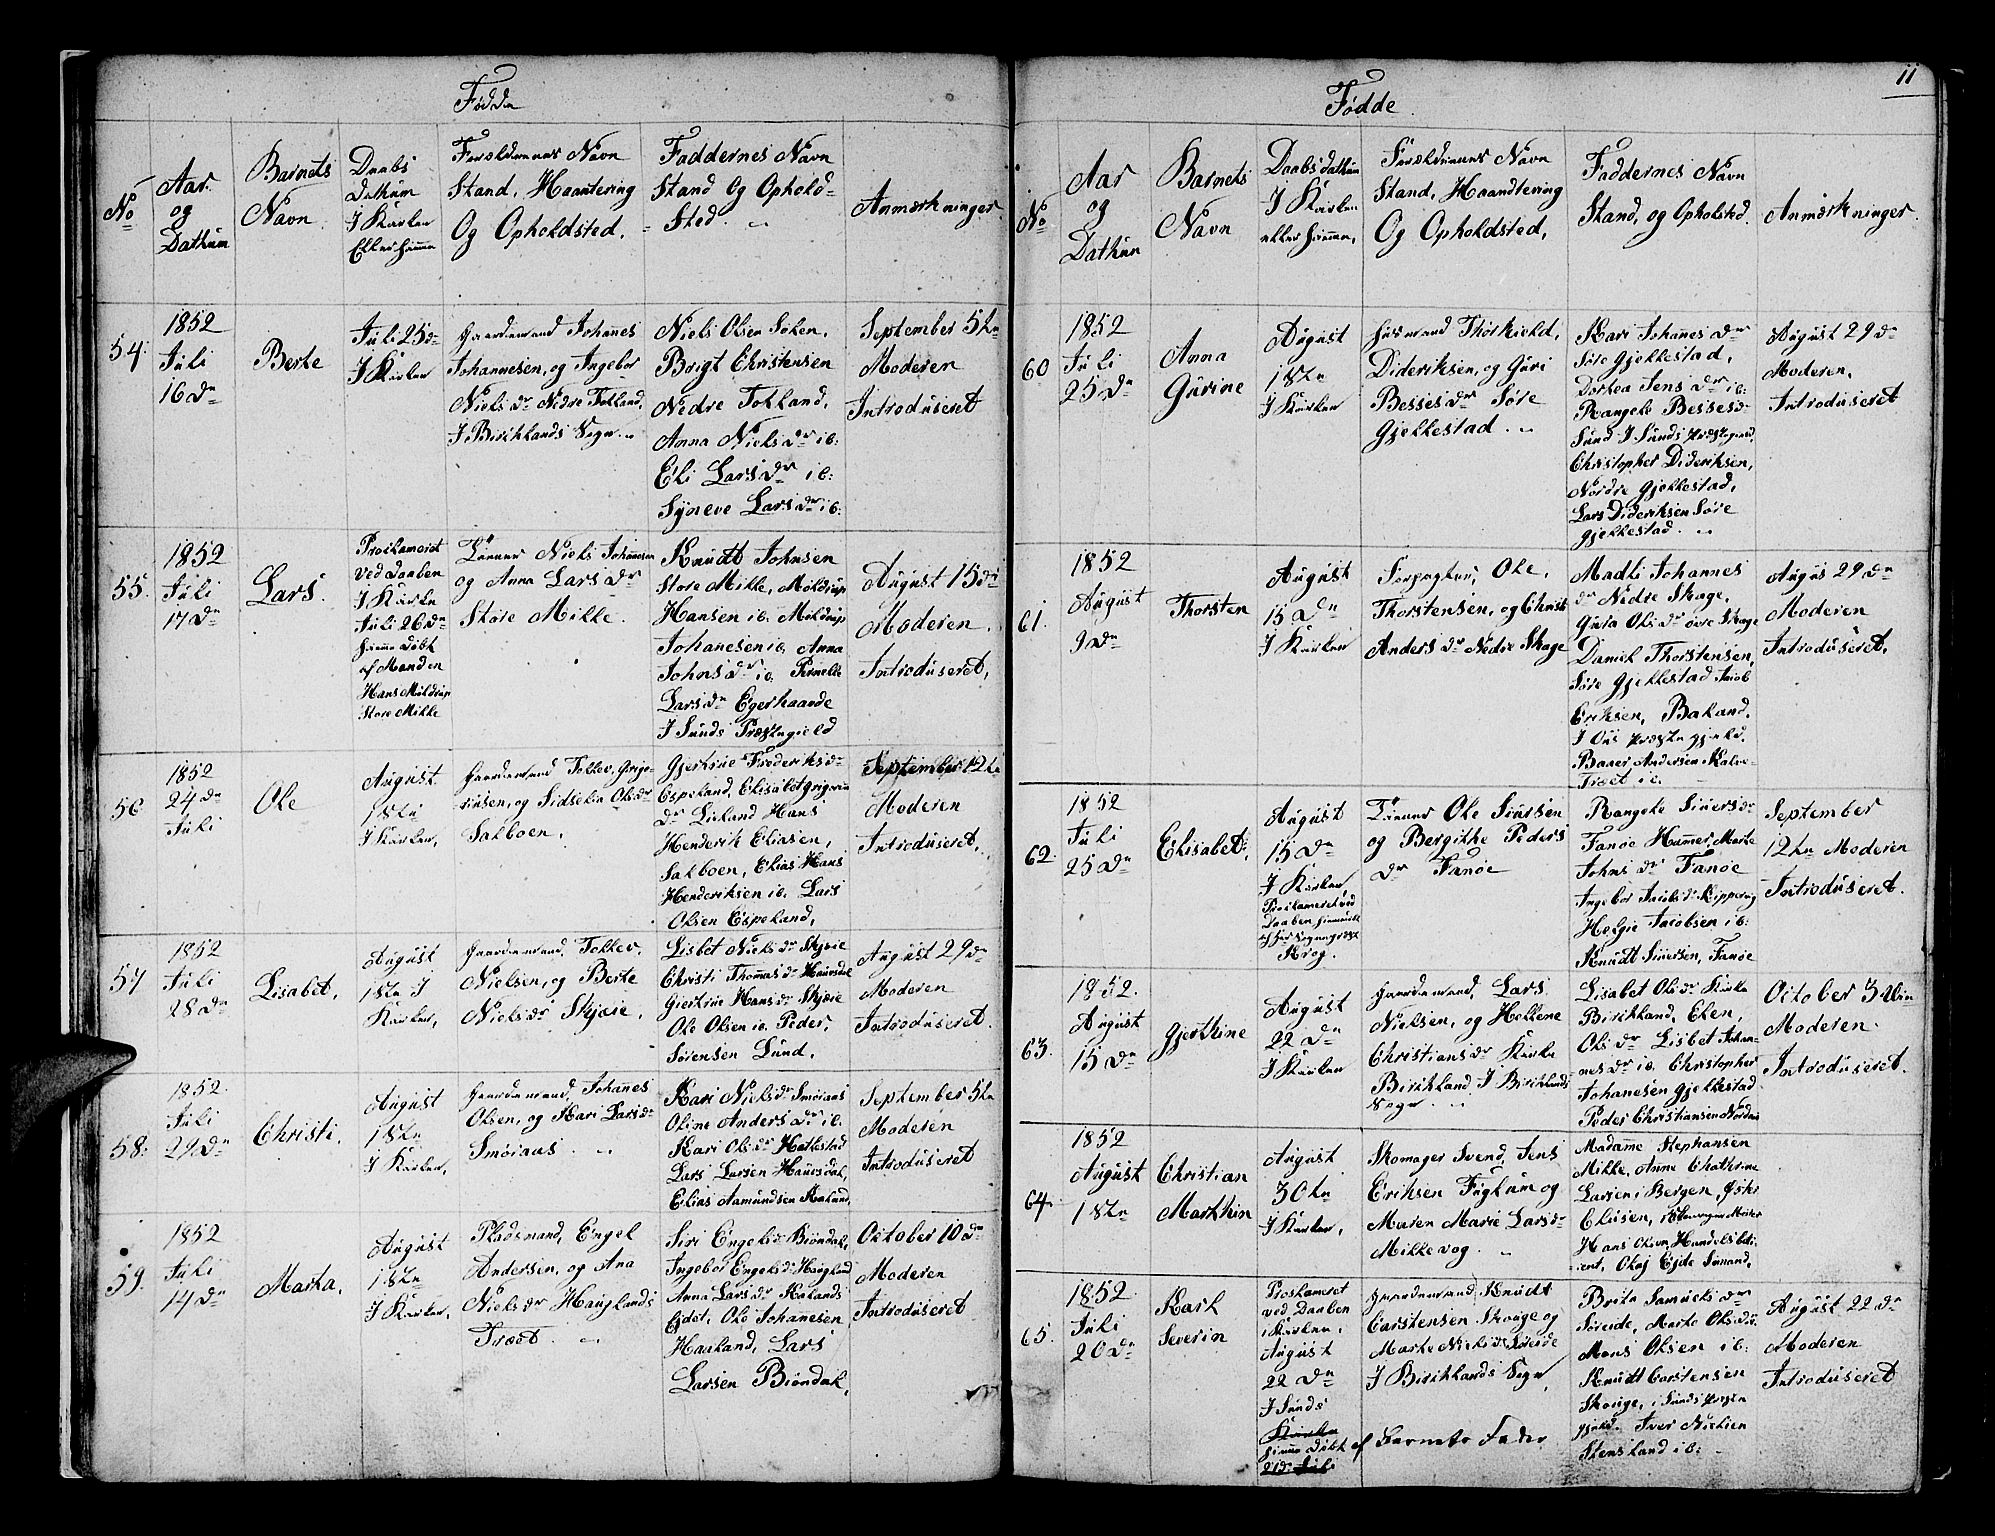 Fødde
No
Aar
og
Dathum
Barnets
Navn
Daabs
Dathum
I Kirken
Eller hiemme
Forældrenes Navn
Stand, Haantering
Og Opholdsted.
Faddernes Navn
Stand Og Ophold-
Sted.
Anmærkninger
54.
1852
Juli
16 dn
Berte
Juli 25 dn
I Kirken
Gaardemand Johanes
Johannesen, og Ingebor
Niels dr Nedre Tokland,
I Birchlands Sogn
Niels Olsen
Brigt Christensen
Nedre Tokland,
Anna Niels dr ib:
Eli Lars dr ib:
Syneve Lars dr ib:
September 5te
Moderen
Introduseret
55.
1852
Juli
17 dn
Lars.
ved Daaben
I Kirken
Juli 26 dn
hiemme døbt
af Manden
Hans Moldrup
Store Milke
Niels Johanesen
og Anna Lars dr
Store Milke.
Knudt Johnsen
Store Milke, Moldrup
Hansen ib. Moldrup
Johanesen ib, Anna
Johns dr ib. Pernelle
Lars dr Egerhaande
I Sunds Præstegield
August 15 dn
Moderen.
Introduseret,
56
1852
24 dn
Juli
Ole
August
18tn
I Kirken,
Gaardemand Tollev,
og Sidselia Ols dr
Salboen.
Gjertrue Frederiks dr
Espeland, Elisabet
dr Hans
Henderik Eliasen,
Salboen, Elias Hans
Henderiksen ib. Lars
Olsen Espeland,
September 12te
Moderen
Introduseret,
57
1852
Juli
28 dn
Lisabet,
August
18tn I
Kirken,
Gaardemand, Tollev
Nielsen, og Berte
Niels dr Skjæie,
Lisbet Niels dr Skjæie
Christi Thomas dr Hauvsdal
Giertrue Hans dr Skjæie
Ole Olsen ib. Peder
Sørensen Lund,
August 29 dn
Moderen
Introduseret.
58.
1852
Juli
29 dn
Christi.
August
18tn
I Kirken,
Gaardemand, Johanes
Olsen, og Kari Lars dr
Kari Niels dr
Oline Anders dr ib.
Kari Ols dr Hatlestad
Lars Larsen Hauvsdal,
Elias Aamundsen
September 5te
Moderen
Introduseret
59.
1852
Juli
14 dn
Marta.
August
18tn
I Kirken,
Pladsmand, Engel
Andersen, og Ana
Niels dr Hauglands
Træet.
Siri Engels dr Biøndal,
Ingebor Engels dr Haugland
Anna Lars dr
Eidet, Ole Johanesen
Haaland, Lars
Larsen Biøndal,
October 10 dn
Moderen
Introduseret
11
Fødde.
No
Aar
og
Dathum
Barnets
Navn
Daabs dathum
I Kirken
eller hiemme,
Forældrenes Navn
Stand, Haandtering
Og Opholdsted,
Faddernes Navn
Stand, og Opholsted.
Anmærkninger.
60
1852
Juli
25 dn
Anna
Gurine
August
18tn
I Kirken
Husmand Thorkield,
Dideriksen, og Guri
Besses dr Søre
Gjekkestad.
Kari Johanes dr
Søre Gjekkestad,
Dorkea Jens dr ib:
Rangele Besses dr
Sund I Sunds Præstegjeld,
Christopher Dideriksen,
Nordre Gjekkestad,
Lars Dideriksen Søre
Gjekkestad.
August 29 dn
Moderen,
Introduseret
61.
1852
August
9 dn
Thorsten
August
15 dn
I Kirken
Forpagter, Ole,
Thorstensen, og Christi
Anders dr Nedre Skage
Madli Johannes
dr Nedre Skage,
Guru Ols dr øvre Skage
Daniel Thorstensen,
Søre Gjekkestad Jacob
Eriksen, Bakand,
I Ous Præstegjeld.
Baaer Andersen Kalve-
Træet ib.
Augus 29 dn
Moderen
Introduseret.
62.
1852
Juli
25 dn
Elisabet.
August
15 dn
I Kirken,
Proclameret ved
Daaben
Krog.
Ole Siursen
og Bergithe Peders
dr Fanøe
Rangele Siuers dr
Fanøe Hamer, Marte
Johns dr Fanøe
Ingebor Jacobs dr
Helgie Jacobsen ib:
Knudt Siursen, Fanøe
September
12te Moderen
Introduseret.
63.
1852.
August
15 dn
Gjerthine
August
22 dn
I Kirken
Gaardemand, Lars
Nielsen, og Hellene
Christians dr Kirke
Birchland I Birchlands
Sogn
Lisabet Ols dr Kirke
Birchland, Elen,
Ols dr Lisbet Johan-
nes dr ib. Christopher
Johanesen Gjekkestad
Peder Christiansen
October 3 din
Moderen.
Introduseret.
64.
1852
August
18tn
Christian
Marthin
August
30tn
I Kirken,
Skomager Svend, Jens
Eriksen Fuglum og
Maren Marie Lars dr
Milkevog.
Madamme Stephansen
Milke, Anne Chathrine
Larsen i Bergen,
Hans Olsen, Handelsbeti-
ent,
65.
1852.
Juli
20 dn
Karl
Severin
Proclameret
ved Daaben
i Kirken,
August
22 dn
I Sunds
Kirke
hiemme døbt af Barnets Fader
21 dn Juli
Gaardemand, Knudt
Carstensen Skouge og
Marte Niels dr Søreide
I Birchlands Sogn,
Brita Samuels dr
Søreide, Marte Ols dr
Mons Olsen ib:
Knudt Carstensen
Skouge, i Sunds Præste
gjeld. Iver Nielsen
Stensland ib:
August 22 dn
Moderen
Introduseret